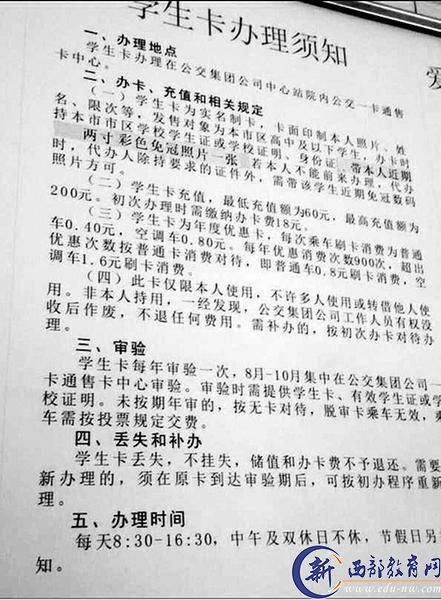 学生卡办理须知
爱
一、办理地点
学生卡办理在公交集团公司中心站院内公交一卡通售
卡中心。
二、办卡、充值和相关规定
(一)学生卡为实名制卡，卡面印制本人照片、姓
名、限次等，发售对象为本市区高中及以下学生，办卡时
持本市市区学校学生证或学校证明、身份证、带本人近期
两寸彩色免冠照片一张 若本人不能前来办理，代办
时，代办人除持要求的证件外，需带该学生近期免冠数码
照片方可。
(二)学生卡充值，最低充值额为60元，最高充值额为
200元。初次办理时需缴纳办卡费18元。
(三)学生卡为年度优惠卡，每次乘车刷卡消费为普通
车0.40元，空调车0.80元。每年优惠消费次数900次，超出
优惠次数按普通卡消费对待，即普通车0.8元刷卡消费，空
调车1.6元刷卡消费。
(四)此卡仅限本人使用，不许多人使用或转借他人使
用。非本人持用，一经发现，公交集团公司工作人员有权没
收后作废，不退任何费用。需补办的，按初次办卡对待办
理。
三、审验
学生卡每年审验一次，8月-10月集中在公交集团公司一
卡通售卡中心审验。审验时需提供学生卡、有效学生证或学
校证明。未按期年审的，按无卡对待，脱审卡乘车无效，乘
车需按投票规定交费。
四、丢失和补办
学生卡丢失，不挂失，储值和办卡费不予退还。需要
新办理的，须在原卡到达审验期后，可按初办程序重新
理。
五、办理时间
每天8:30-16:30，中午及双休日不休，节假日另
知。
新 西部教育网
www.edu-nw.com